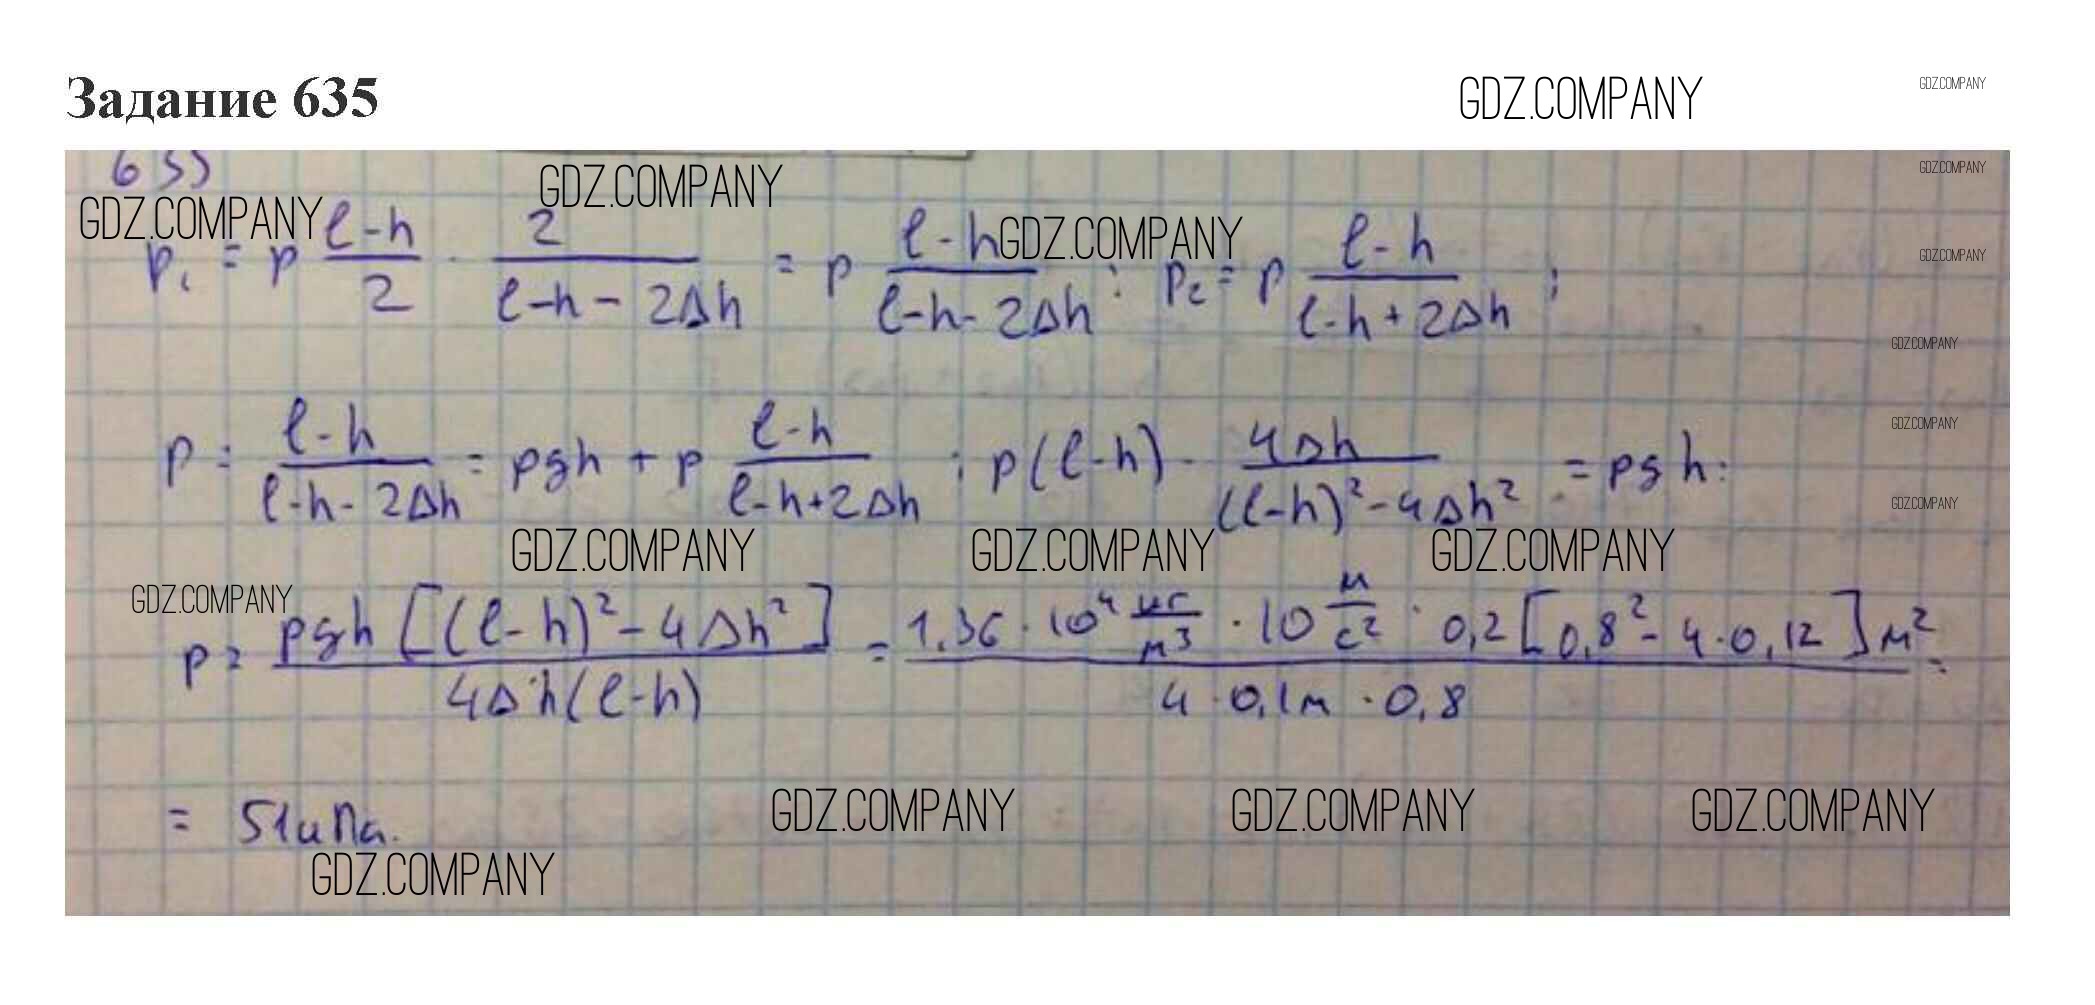 Задание 635
GDZ.COMPANY
GDZ.COMPANY
635
GDZ.COMPANY
GDZ.COMPANY
GDZ.COMPANY
GDZ.COMPANY
p₁ = p (l-h)/2 · 2/(l-h-2Δh) = p (l-h)/(l-h-2Δh) ; p₂ = p (l-h)/(l-h+2Δh) ;
GDZ.COMPANY
GDZ.COMPANY
GDZ.COMPANY
p = (l-h)/(l-h-2Δh) = ρgh + p (l-h)/(l-h+2Δh) ; p(l-h) · 4Δh/((l-h)²-4Δh²) = ρgh :
GDZ.COMPANY
GDZ.COMPANY
GDZ.COMPANY
GDZ.COMPANY
GDZ.COMPANY
p = ρgh[(l-h)²-4Δh²]/(4Δh(l-h)) = 1.36·10⁴ кг/м³ · 10 м/с² · 0,2[0,8²-4·0,12]м²/(4·0,1м·0,8) =
= 51кПа.
GDZ.COMPANY
GDZ.COMPANY
GDZ.COMPANY
GDZ.COMPANY